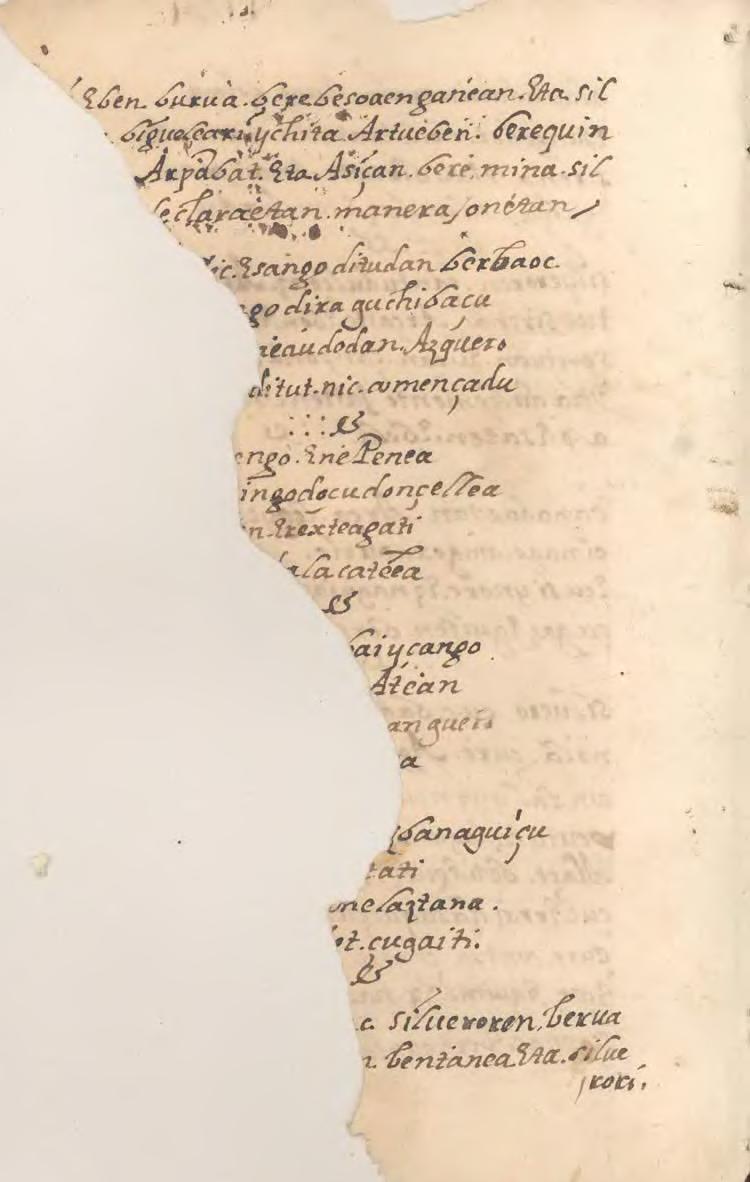 Eben. burua. bere besoaenganean. Eta. sil
bigueleari ychita Artueben. berequin
Arpabat. Eta Asiçan. bere, mina. sil
eclaraetan. manera, onetan,
ic. Esango ditudan berbaoc
go dira guchibaçu
ieaudodan. Azquero
ditut. nic. començadu
engo. Ene Penea
ingodocudonçellea
n. Trexteagati
alacateea
bai ycango
Atean
an gueri
a
banaguiçu
tati
me laztana.
ot. çugaiti.
c. silueroren, berua
n. bentanea Eta. silue
rori.